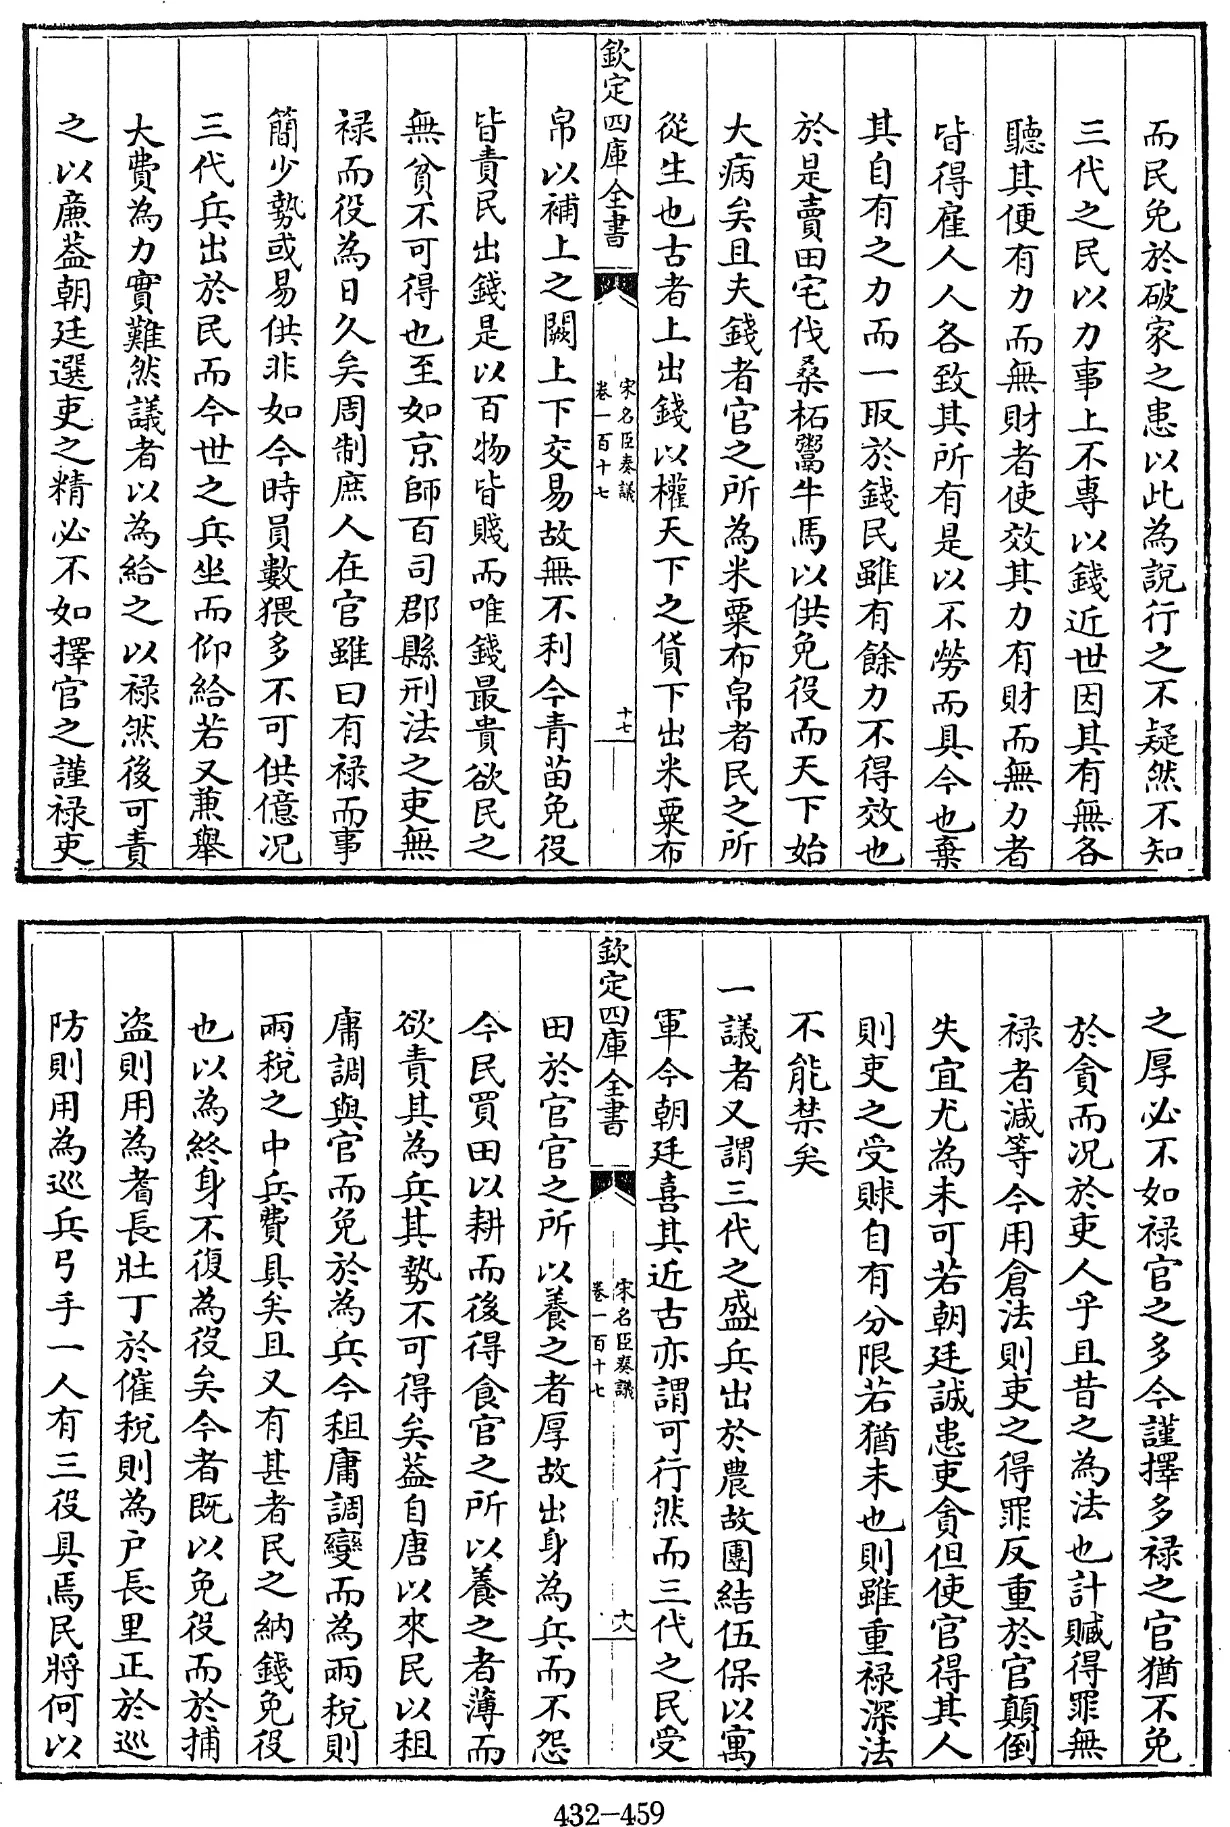 而民免於破家之患以此為說行之不疑然不知
三代之民以力事上不專以錢近世因其有無各
聽其便有力而無財者使效其力有財而無力者
皆得雇人人各致其所有是以不勞而具今也棄
其自有之力而一取於錢民雖有餘力不得效也
於是賣田宅伐桑柘鬻牛馬以供免役而天下始
大病矣且夫錢者官之所為米粟布帛者民之所
從生也古者上出錢以權天下之貨下出米粟布
欽定四庫全書
宋名臣奏議
卷一百十七
十七
帛以補上之闕上下交易故無不利今青苗免役
皆責民出錢是以百物皆賤而唯錢最貴欲民之
無貧不可得也至如京師百司郡縣刑法之吏無
祿而役為日久矣周制庶人在官雖曰有祿而事
簡少勢或易供非如今時員數猥多不可供億况
三代兵出於民而今世之兵坐而仰給若又兼舉
大費為力實難然議者以為給之以祿然後可責
之以廉葢朝廷選吏之精必不如擇官之謹祿吏
之厚必不如祿官之多今謹擇多祿之官猶不免
於貪而况於吏人乎且昔之為法也計贓得罪無
祿者減等今用倉法則吏之得罪反重於官顛倒
失宜尤為未可若朝廷誠患吏貪但使官得其人
則吏之受賕自有分限若猶未也則雖重祿深法
不能禁矣
一議者又謂三代之盛兵出於農故團結伍保以寓
軍今朝廷喜其近古亦謂可行然而三代之民受
欽定四庫全書
宋名臣奏議
卷一百十七
十八
田於官官之所以養之者厚故出身為兵而不怨
今民買田以耕而後得食官之所以養之者薄而
欲責其為兵其勢不可得矣葢自唐以來民以租
庸調與官而免於為兵今租庸調變而為兩稅則
兩稅之中兵費具矣且又有甚者民之納錢免役
也以為終身不復為役矣今者既以免役而於捕
盜則用為耆長壯丁於催稅則為户長里正於巡
防則用為巡兵弓手一人有三役具焉民將何以
432-459